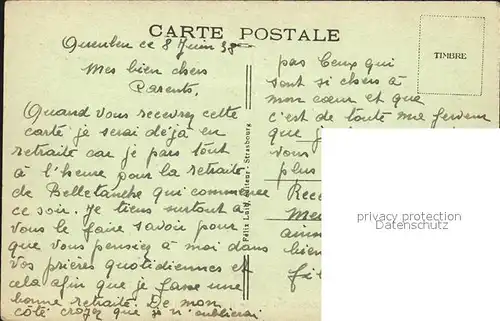 CARTE POSTALE
TIMBRE
ce 8 Juin 38
Mes bien chers
Parents,
Quand vous recevrez cette
carte je serai déjà en
retraite car je pars tout
à l'heure pour la retraite
de Belletanche qui commence
ce soir. Je tiens surtout à
vous le faire savoir pour
que vous pensiez à moi dans
vos prières quotidiennes et
cela afin que je fasse une
bonne retraite. De mon
côté croyez que je n'oublierai
pas Ceux qui
sont si chers à
mon cœur et que
c'est de toute ma ferveur
que
vous
plus
Mes
bien
Félix Luib, éditeur - Strasbourg
privacy protection
Datenschutz